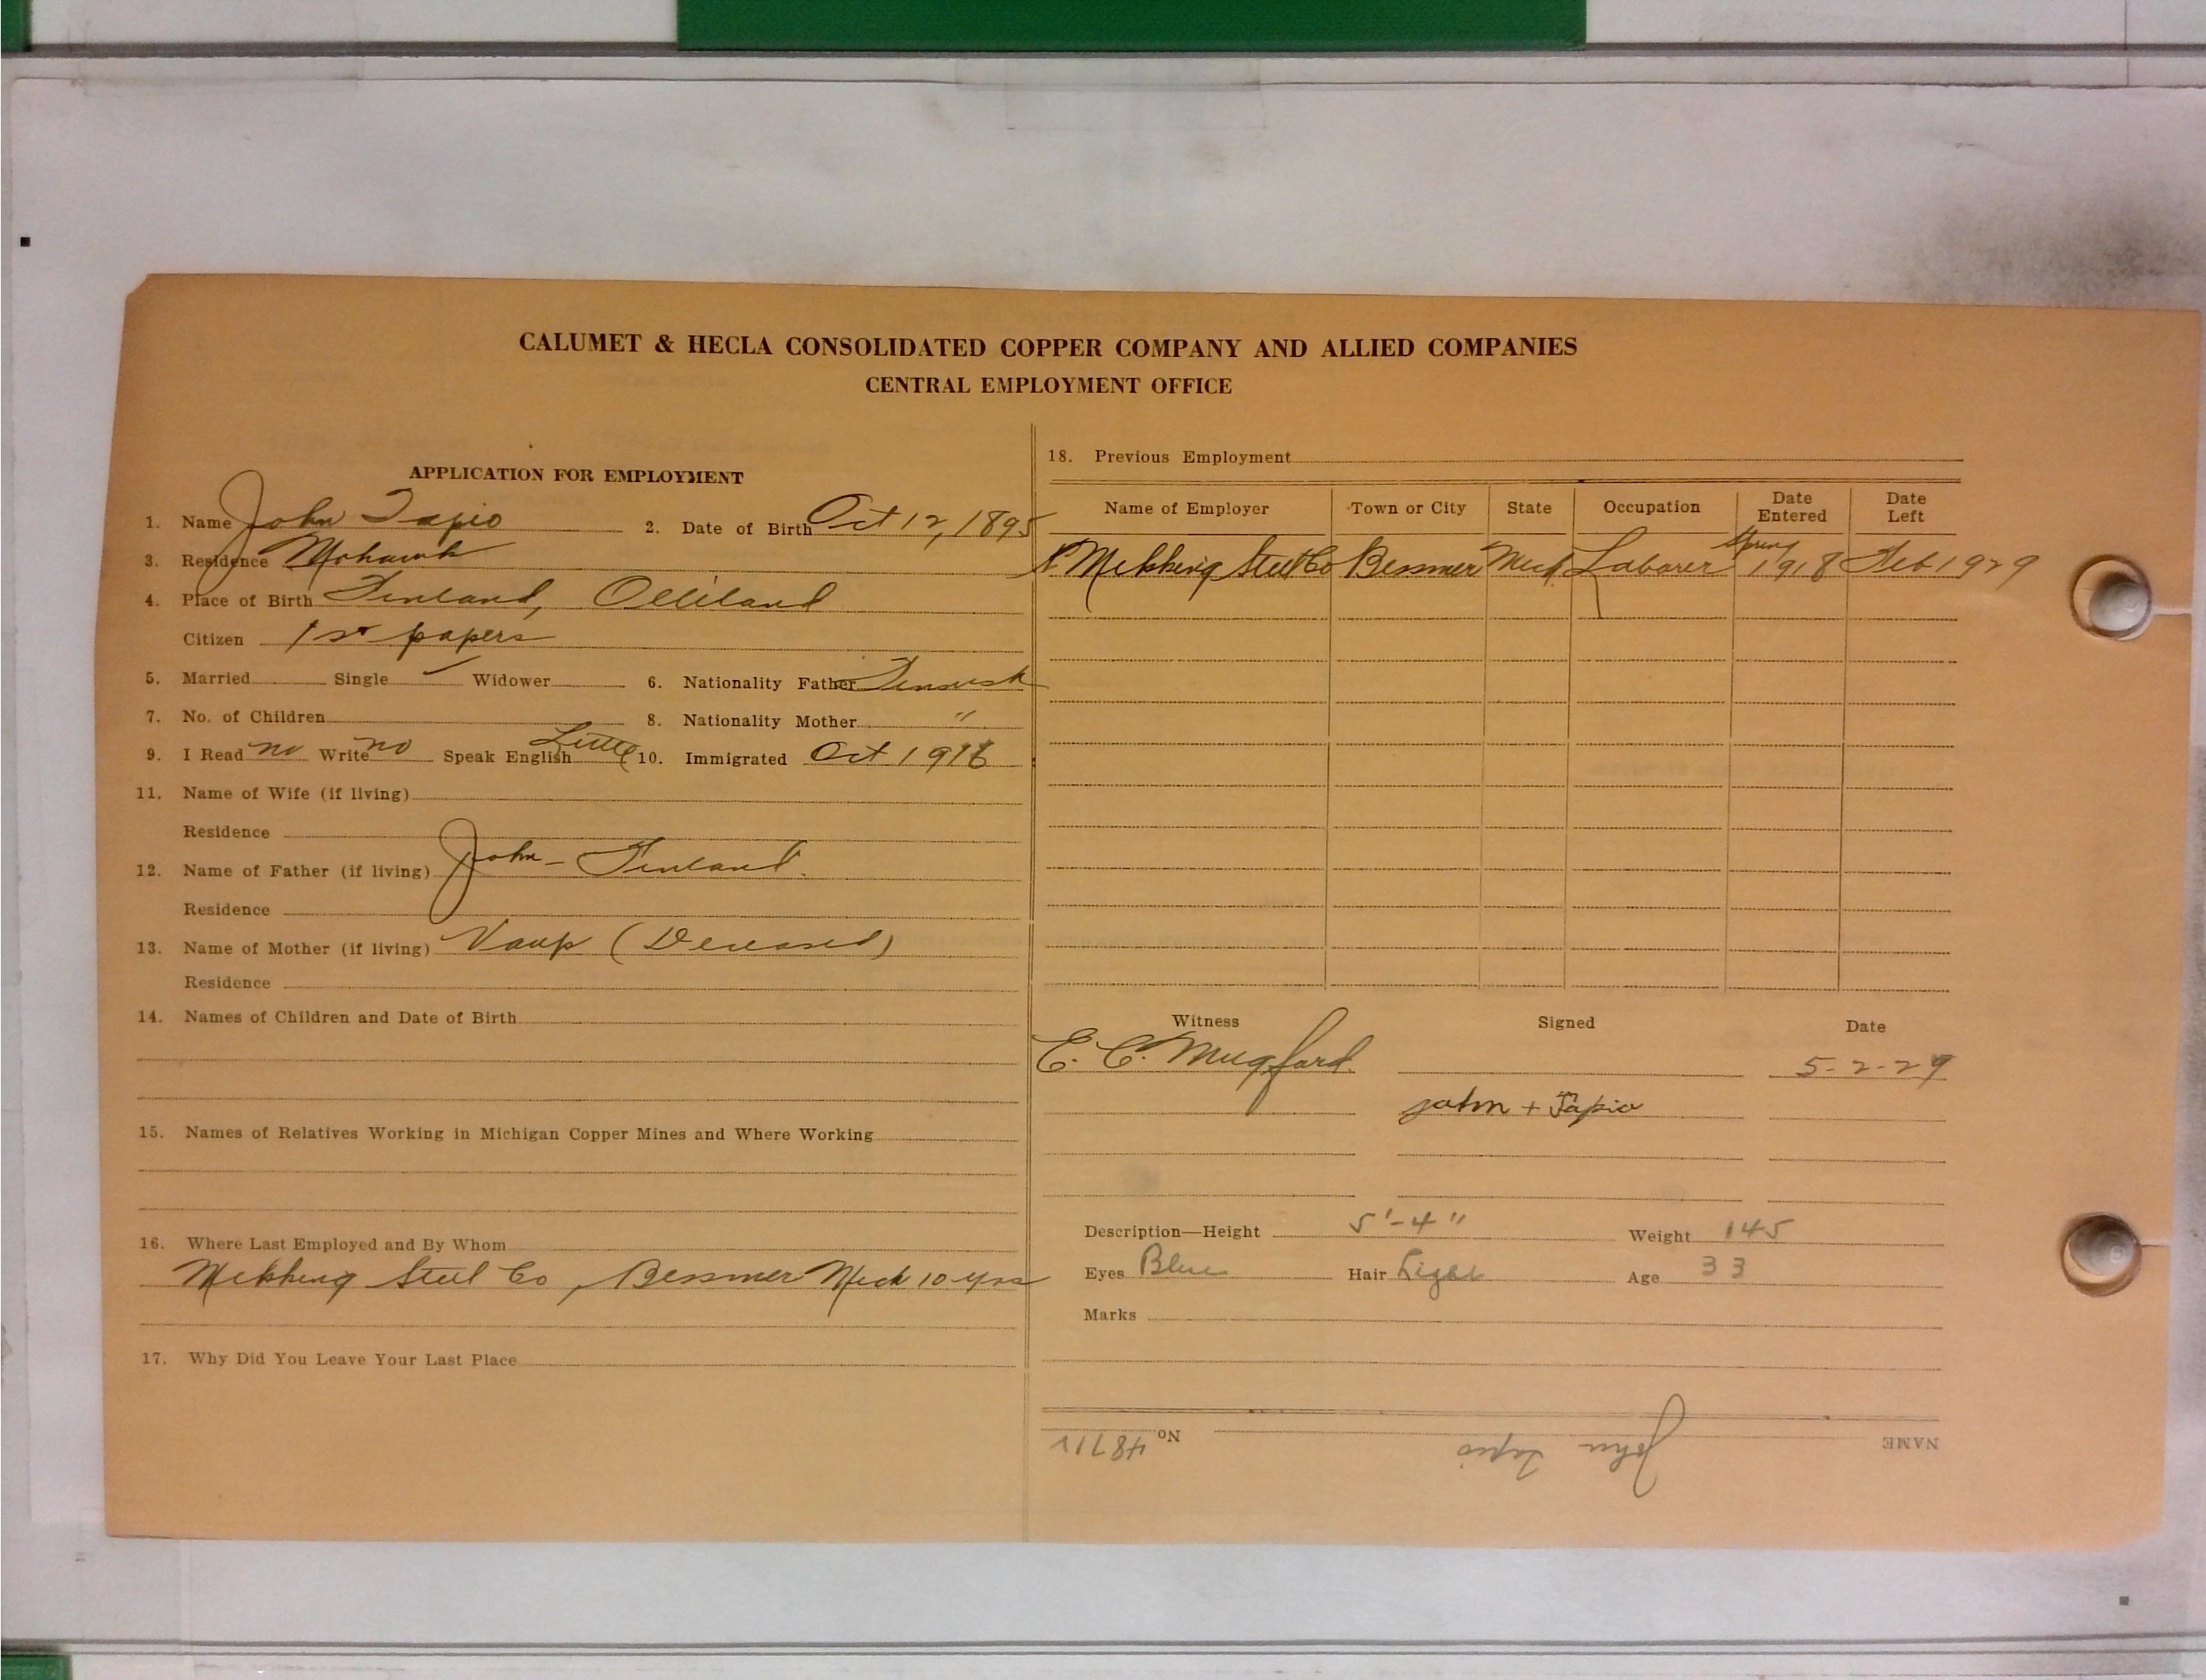 CALUMET & HECLA CONSOLIDATED COPPER COMPANY AND ALLIED COMPANIES
CENTRAL EMPLOYMENT OFFICE
APPLICATION FOR EMPLOYMENT
1. Name John Tapio 2. Date of Birth Oct 12, 1895
3. Residence Mohawk
4. Place of Birth Finland,
Citizen 1st papers
5. Married Single ✓ Widower 6. Nationality Father Finnish
7. No. of Children 8. Nationality Mother "
9. I Read no Write no Speak English Little 10. Immigrated Oct 1916
11. Name of Wife (if living)
Residence
12. Name of Father (if living) John - Finland.
Residence
13. Name of Mother (if living) (Deceased)
Residence
14. Names of Children and Date of Birth
15. Names of Relatives Working in Michigan Copper Mines and Where Working
16. Where Last Employed and By Whom
Steel Co, Bessmer Mich 10 yrs
17. Why Did You Leave Your Last Place
18. Previous Employment
Name of Employer Town or City State Occupation Date Entered Date Left
Steel Co Bessmer Mich Laborer Spring 1918 Feb 1929
Witness Signed Date
E. C. Mugford. 5-2-29
John + Tapio
Description—Height 5'-4" Weight 145
Eyes Blue Hair Light Age 33
Marks
NAME John Tapio No.